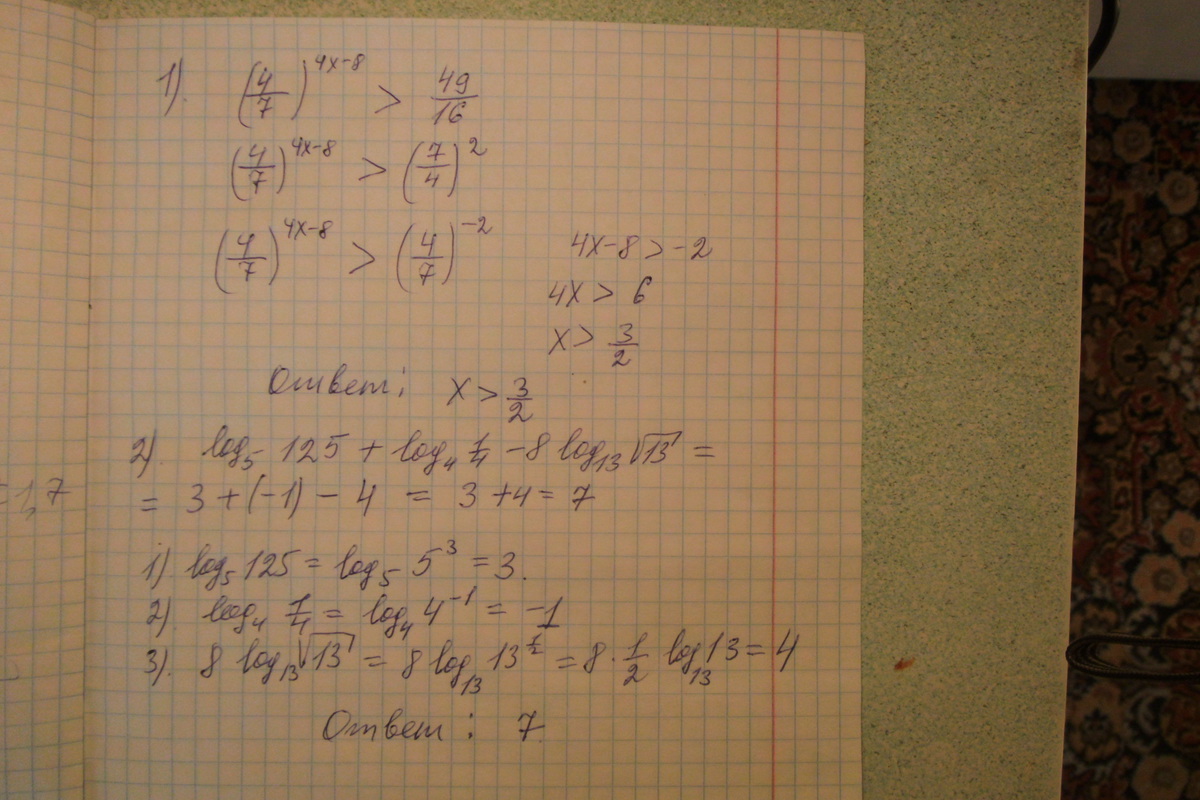 1). (4/7)^(4x-8) > 49/16
(4/7)^(4x-8) > (7/4)^2
(4/7)^(4x-8) > (4/7)^(-2)
4x-8 > -2
4x > 6
x > 3/2
Ответ: x > 3/2
2). log₅ 125 + log₄ 1/4 - 8 log₁₃ √13 =
= 3 + (-1) - 4 = 3 + 4 = 7
1) log₅ 125 = log₅ 5³ = 3.
2) log₄ 1/4 = log₄ 4⁻¹ = -1
3). 8 log₁₃ √13 = 8 log₁₃ 13^(1/2) = 8 · 1/2 log₁₃ 13 = 4
Ответ: 7
=1,7